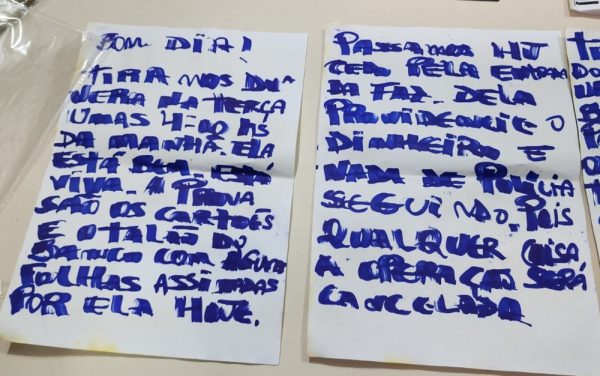 BOM DIA!
TIRAMOS DU
VERA NA TERÇA
UMAS 4:00 HS
DA MANHÃ. ELA
ESTÁ BEM ESTÁ
VIVA. A PROVA
SÃO OS CARTÕES
E O TALÃO DO
BANCO COM ALGUMAS
FOLHAS ASSINADAS
POR ELA HOJE.
PASSAMOS HJ
CEDO PELA ENTRADA
DA FAZ. DELA
PROVIDENCIE O
DINHEIRO E
NADA DE POLÍCIA
SEGUINDO. POIS
QUALQUER COISA
A OPERAÇÃO SERÁ
CANCELADA